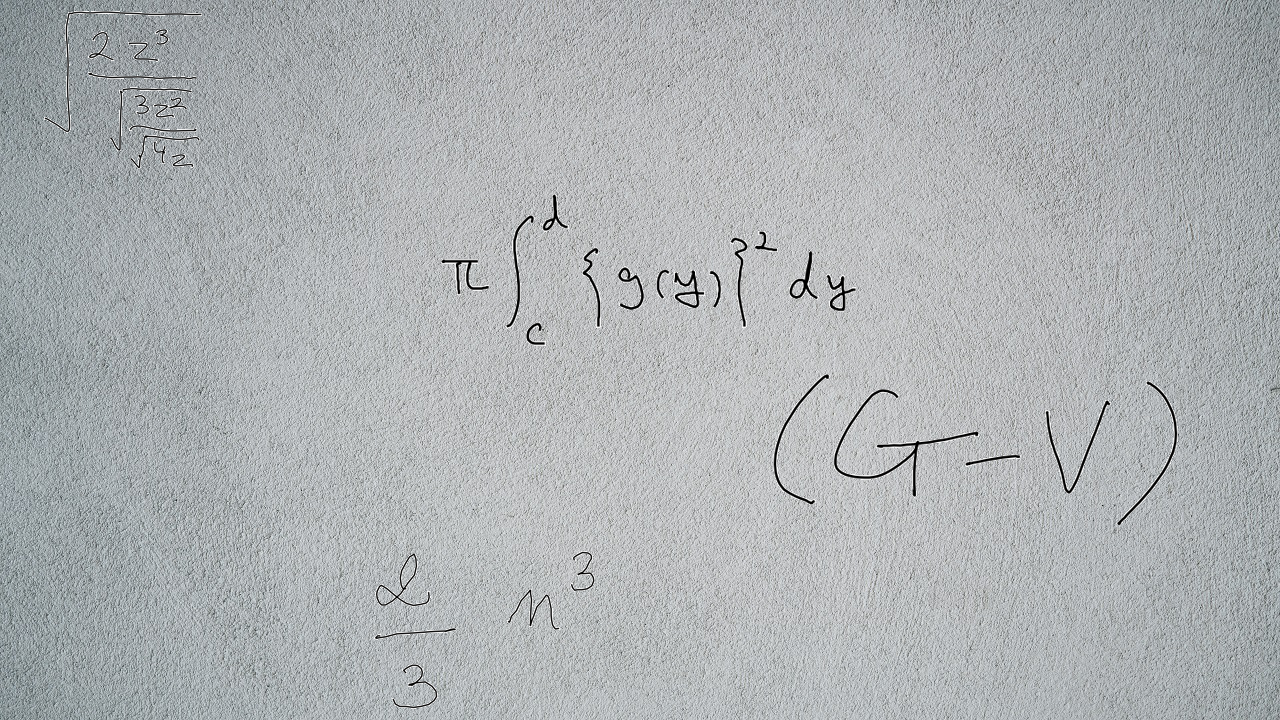 \sqrt{\frac{2z^3}{\sqrt{\frac{3z^2}{\sqrt{4z}}}}}
\pi \int_c^d \{g(y)\}^2 dy
(G-V)
\frac{2}{3} n^3